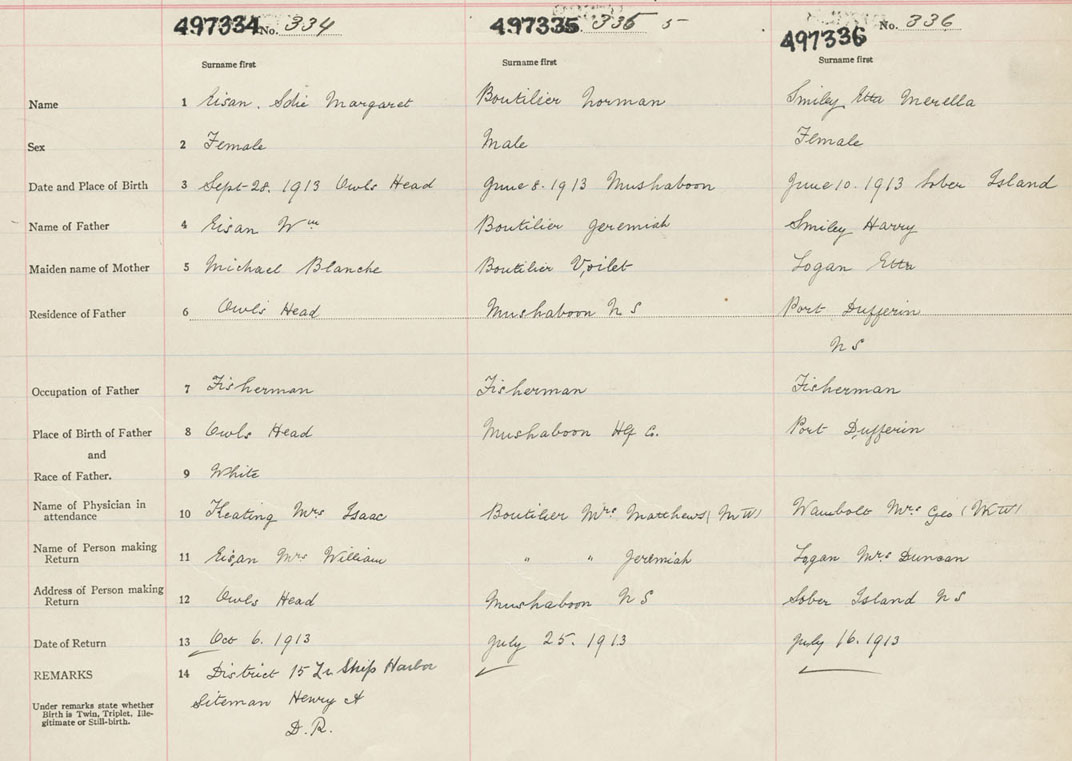 497334 No. 334 497335 335 5 497336 No. 336
Surname first Surname first Surname first
Name 1 Eisan, Sdie Margaret Boutilier Norman Smiley Etta Merella
Sex 2 Female Male Female
Date and Place of Birth 3 Sept 28. 1913 Owls Head June 8. 1913 Mushaboon June 10. 1913 Sober Island
Name of Father 4 Eisan Wm Boutilier Jeremiah Smiley Harry
Maiden name of Mother 5 Michael Blanche Boutilier Voilet Logan Etta
Residence of Father 6 Owls Head Mushaboon N S Port Dufferin
N S
Occupation of Father 7 Fisherman Fisherman Fisherman
Place of Birth of Father 8 Owls Head Mushaboon Hfx Co. Port Dufferin
and
Race of Father. 9 White
Name of Physician in attendance 10 Keating Mrs Isaac Boutilier Mrs Matthews (MW) Wambolt Mrs Geo (MW)
Name of Person making Return 11 Eisan Mrs William " " Jeremiah Logan Mrs Duncan
Address of Person making Return 12 Owls Head Mushaboon N S Sober Island N S
Date of Return 13 Oct 6. 1913 July 25. 1913 July 16. 1913
REMARKS 14 District 15 Ship Harbor
Under remarks state whether Birth is Twin, Triplet, Ille-
gitimate or Still-birth.
Siteman Henry A
D.R.